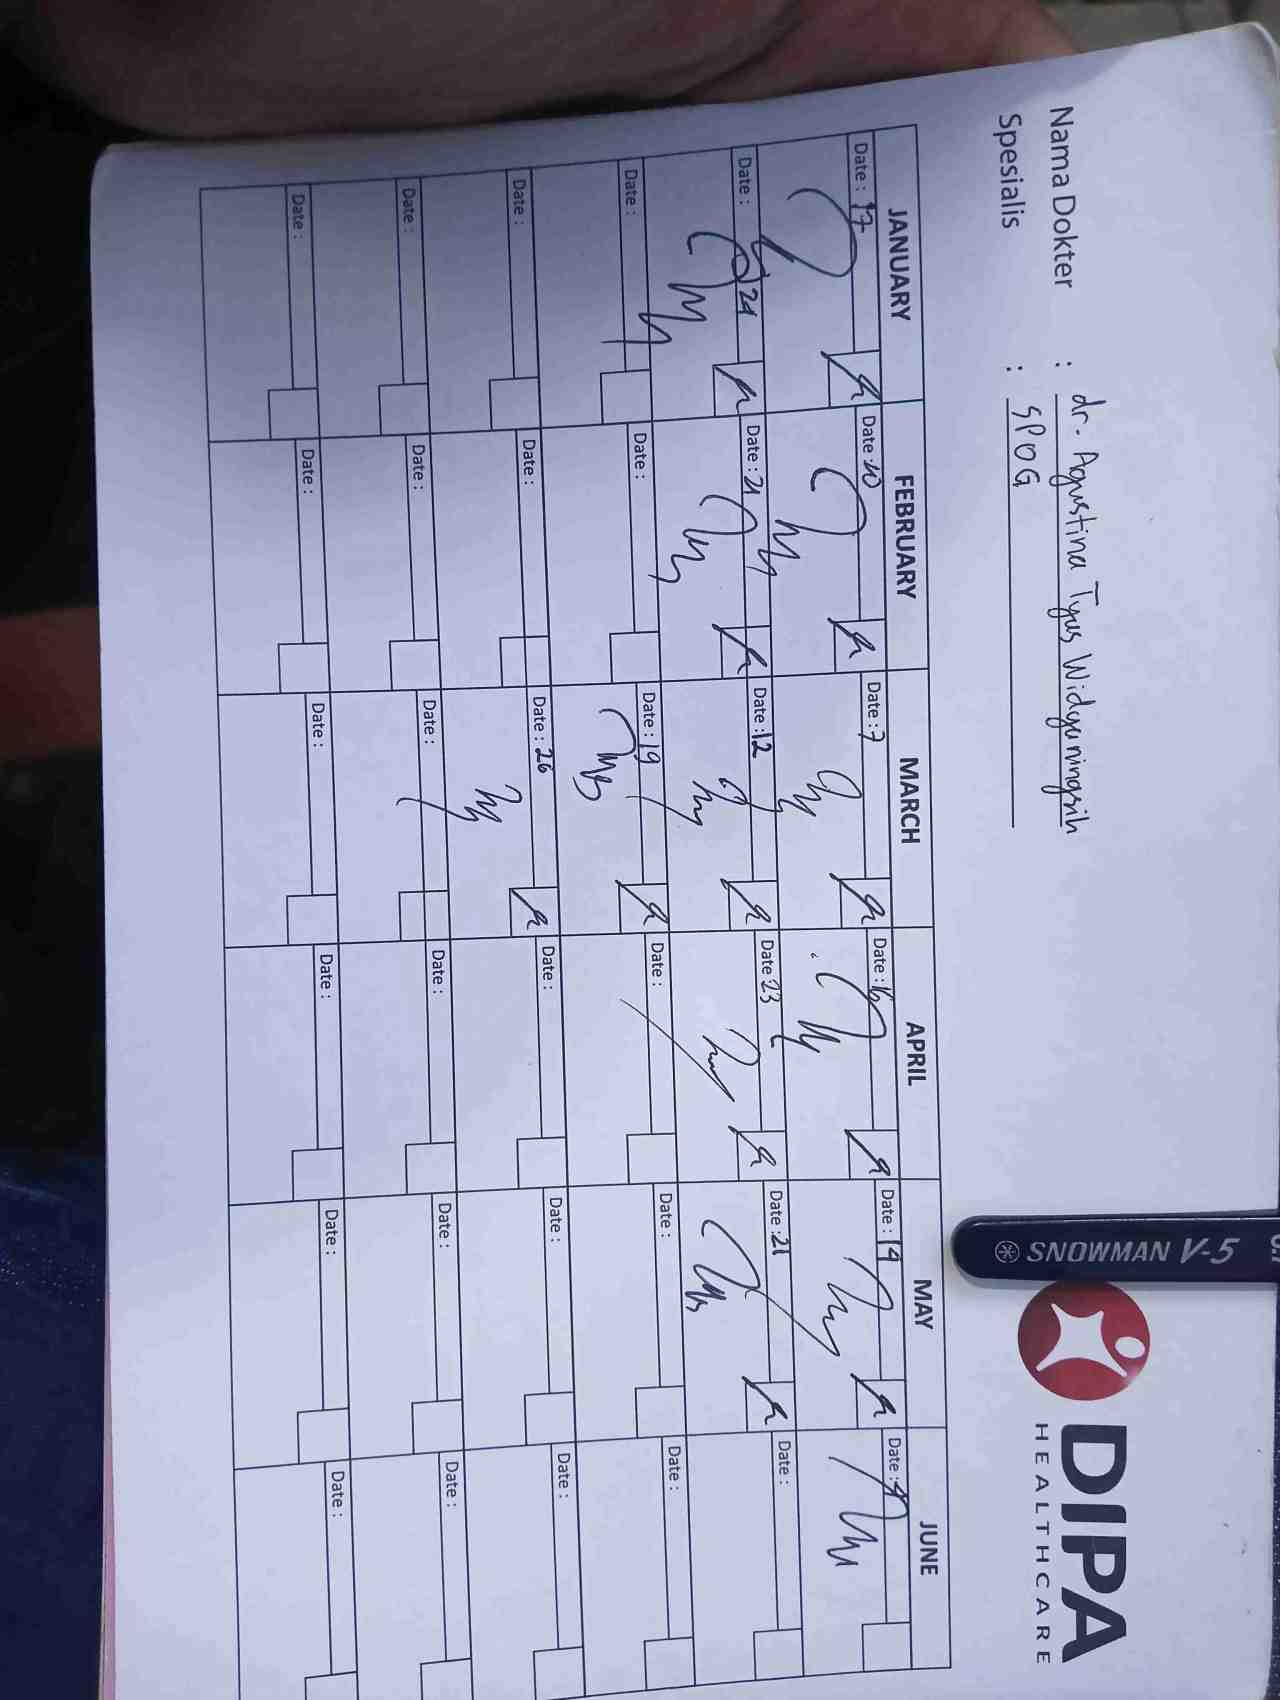 Nama Dokter : dr. Agustina Tyas Widyaningsih
Spesialis : SPOG
DIPA
HEALTHCARE
SNOWMAN V-5
JANUARY FEBRUARY MARCH APRIL MAY JUNE
Date : 17 Date : 10 Date : 7 Date : 16 Date : 14 Date :
Date : 24 Date : 21 Date : 12 Date 23 Date : 21 Date :
Date : Date : Date : 19 Date : Date : Date :
Date : Date : Date : 26 Date : Date : Date :
Date : Date : Date : Date : Date : Date :
Date : Date : Date : Date : Date : Date :